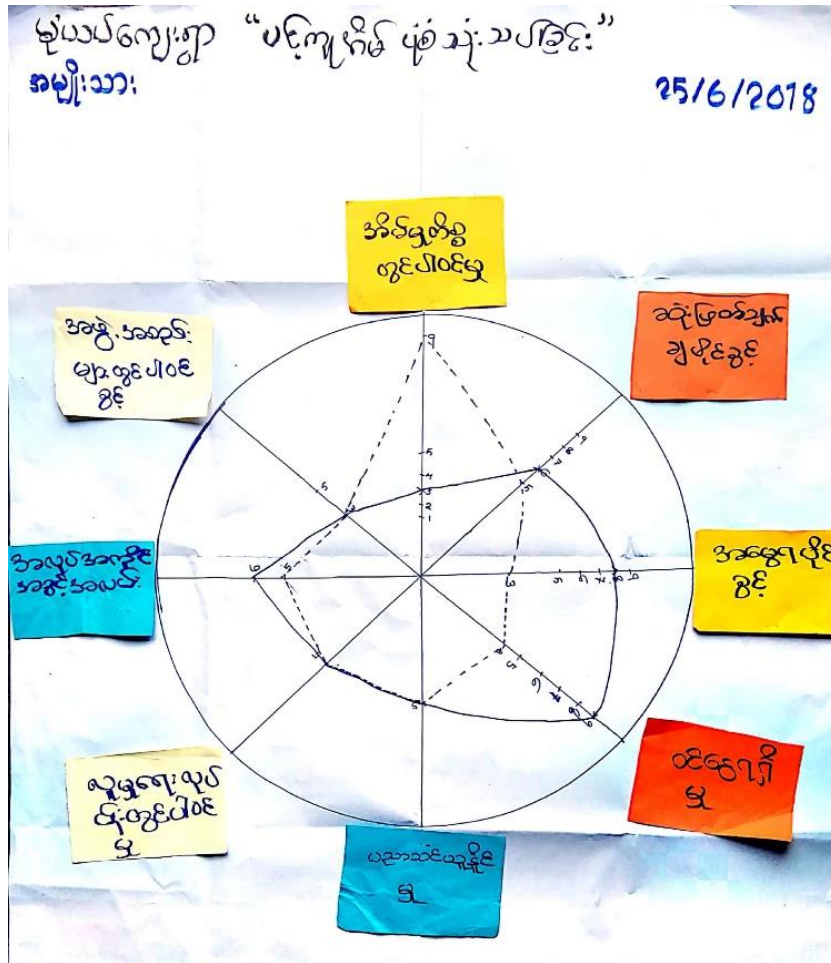 မုံယပ်ကျေးရွာ "ပင့်ကူအိမ် ပုံစံ သုံးသပ်ခြင်း"
အမျိုးသား
25/6/2018
အိမ်မှုကိစ္စ
တွင်ပါဝင်မှု
ဆုံးဖြတ်ချက်
ချပိုင်ခွင့်
အမွေရပိုင်
ခွင့်
ဝင်ငွေရရှိ
မှု
ပညာသင်ယူနိုင်
မှု
လူမှုရေးလုပ်
ငန်းတွင်ပါဝင်
မှု
အလုပ်အကိုင်
အခွင့်အလမ်း
အဖွဲ့အစည်း
များတွင်ပါဝင်
ခွင့်
5
4
3
2
1